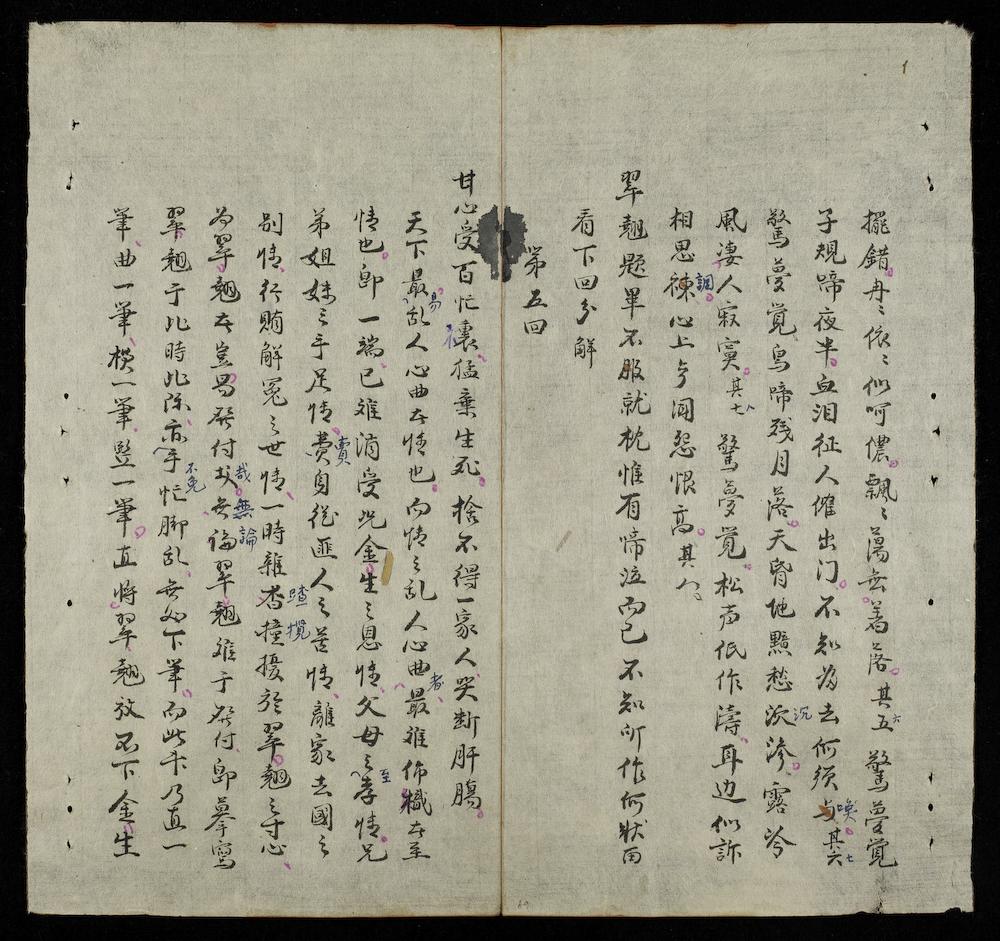 擺錯冉〻依〻似呵儂飄〻蕩无着落其五六驚夢覺
子規啼夜半血泪征人催出门不知为去何须与喚其六七
驚夢覺鳥啼残月落天昏地黯愁沉滲露冷
風凄人寂寞其七八驚夢覺松声低作濤耳边似訴
相思調心上兮洄怨恨高其八
翠翹題畢不服就枕惟有啼泣而已不知所作何狀田
看下回分解
第五回
甘心受百忙裏猛棄生死捨不得一家人哭断肝腸
天下最易乱人心曲在情也而情之乱人心曲者最难佈櫬在至
情也卽一端已难消受况金生之恩情父母之至孝情兄
弟姐妹之手足情賣身従匪人之苦情離家去國之
别情行賄解冤之世情一時雜沓撞攬於翠翹之寸心
为翠翹在豈易發付哉無論翠翹难于發付卽摹寫
翠翹于此時此际亦不免手忙脚乱无处下筆而此卡乃直一
筆曲一筆横一筆竪一筆直將翠翹放不下金生